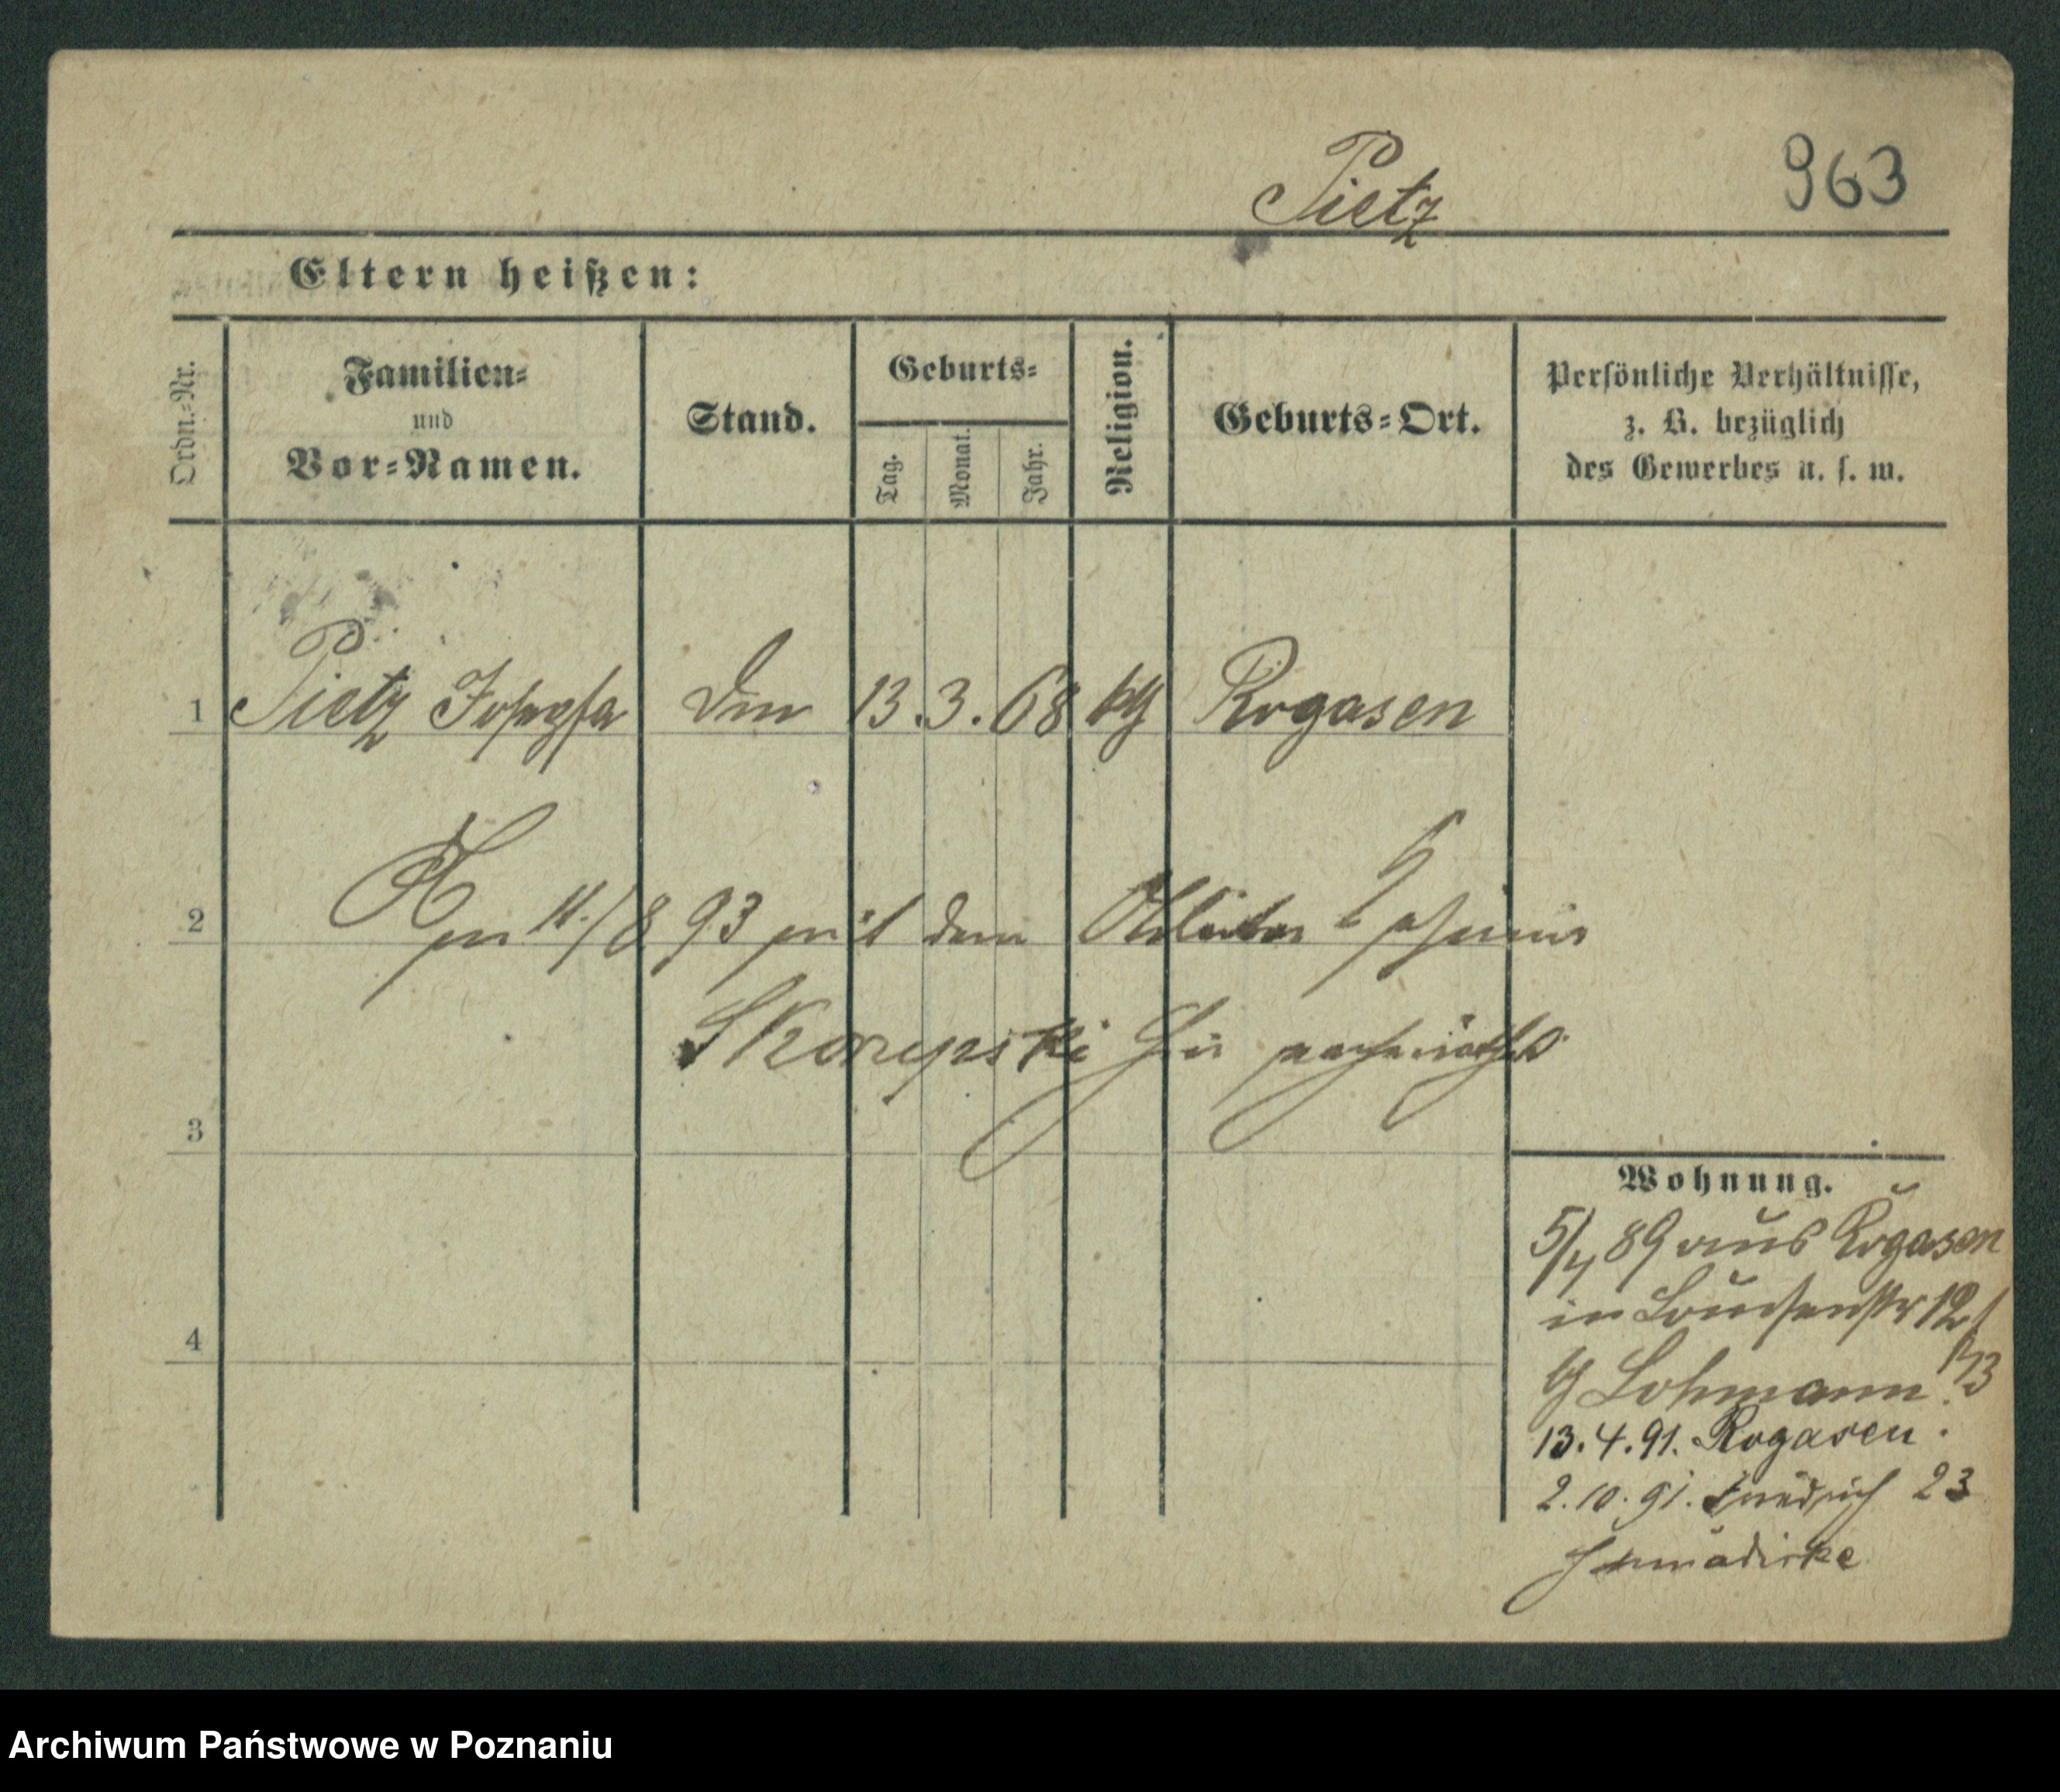 963
Pietz
Eltern heißen:
Ordn.-Nr.
Familien-
und
Vor-Namen.
Stand.
Geburts-
Tag.
Monat.
Jahr.
Religion.
Geburts-Ort.
Persönliche Verhältnisse,
z. B. bezüglich
des Gewerbes u. s. w.
1 Pietz Josepha 13. 3. 68 kth Rogasen
2 11./8 93 mit dem Arbeiter
Skorupski hier
3
4
Wohnung.
5/7 89 aus Rogasen
in Louisenstr 12
b/ Lohmann.
13. 4. 91. Rogasen.
2. 10. 91. Friedrich 23
Archiwum Państwowe w Poznaniu